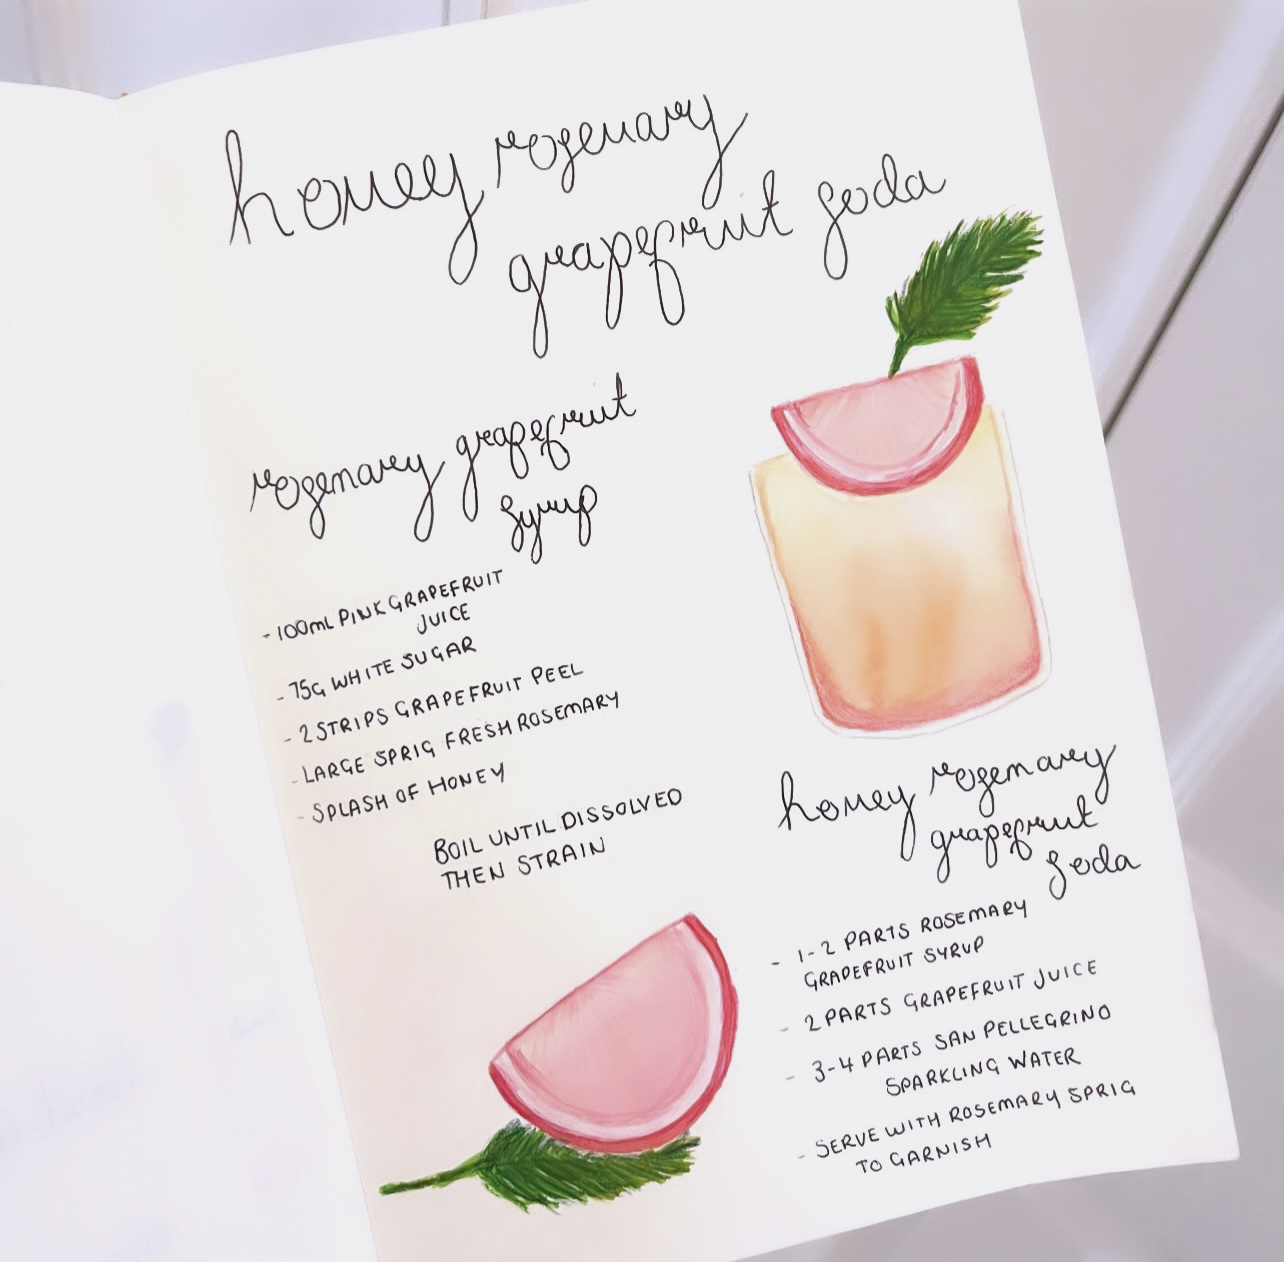 honey rosemary
grapefruit soda
rosemary grapefruit
syrup
- 100ML PINK GRAPEFRUIT
JUICE
- 75G WHITE SUGAR
- 2 STRIPS GRAPEFRUIT PEEL
- LARGE SPRIG FRESH ROSEMARY
- SPLASH OF HONEY
BOIL UNTIL DISSOLVED
THEN STRAIN
honey rosemary
grapefruit
soda
- 1-2 PARTS ROSEMARY
GRAPEFRUIT SYRUP
- 2 PARTS GRAPEFRUIT JUICE
- 3-4 PARTS SAN PELLEGRINO
SPARKLING WATER
- SERVE WITH ROSEMARY SPRIG
TO GARNISH